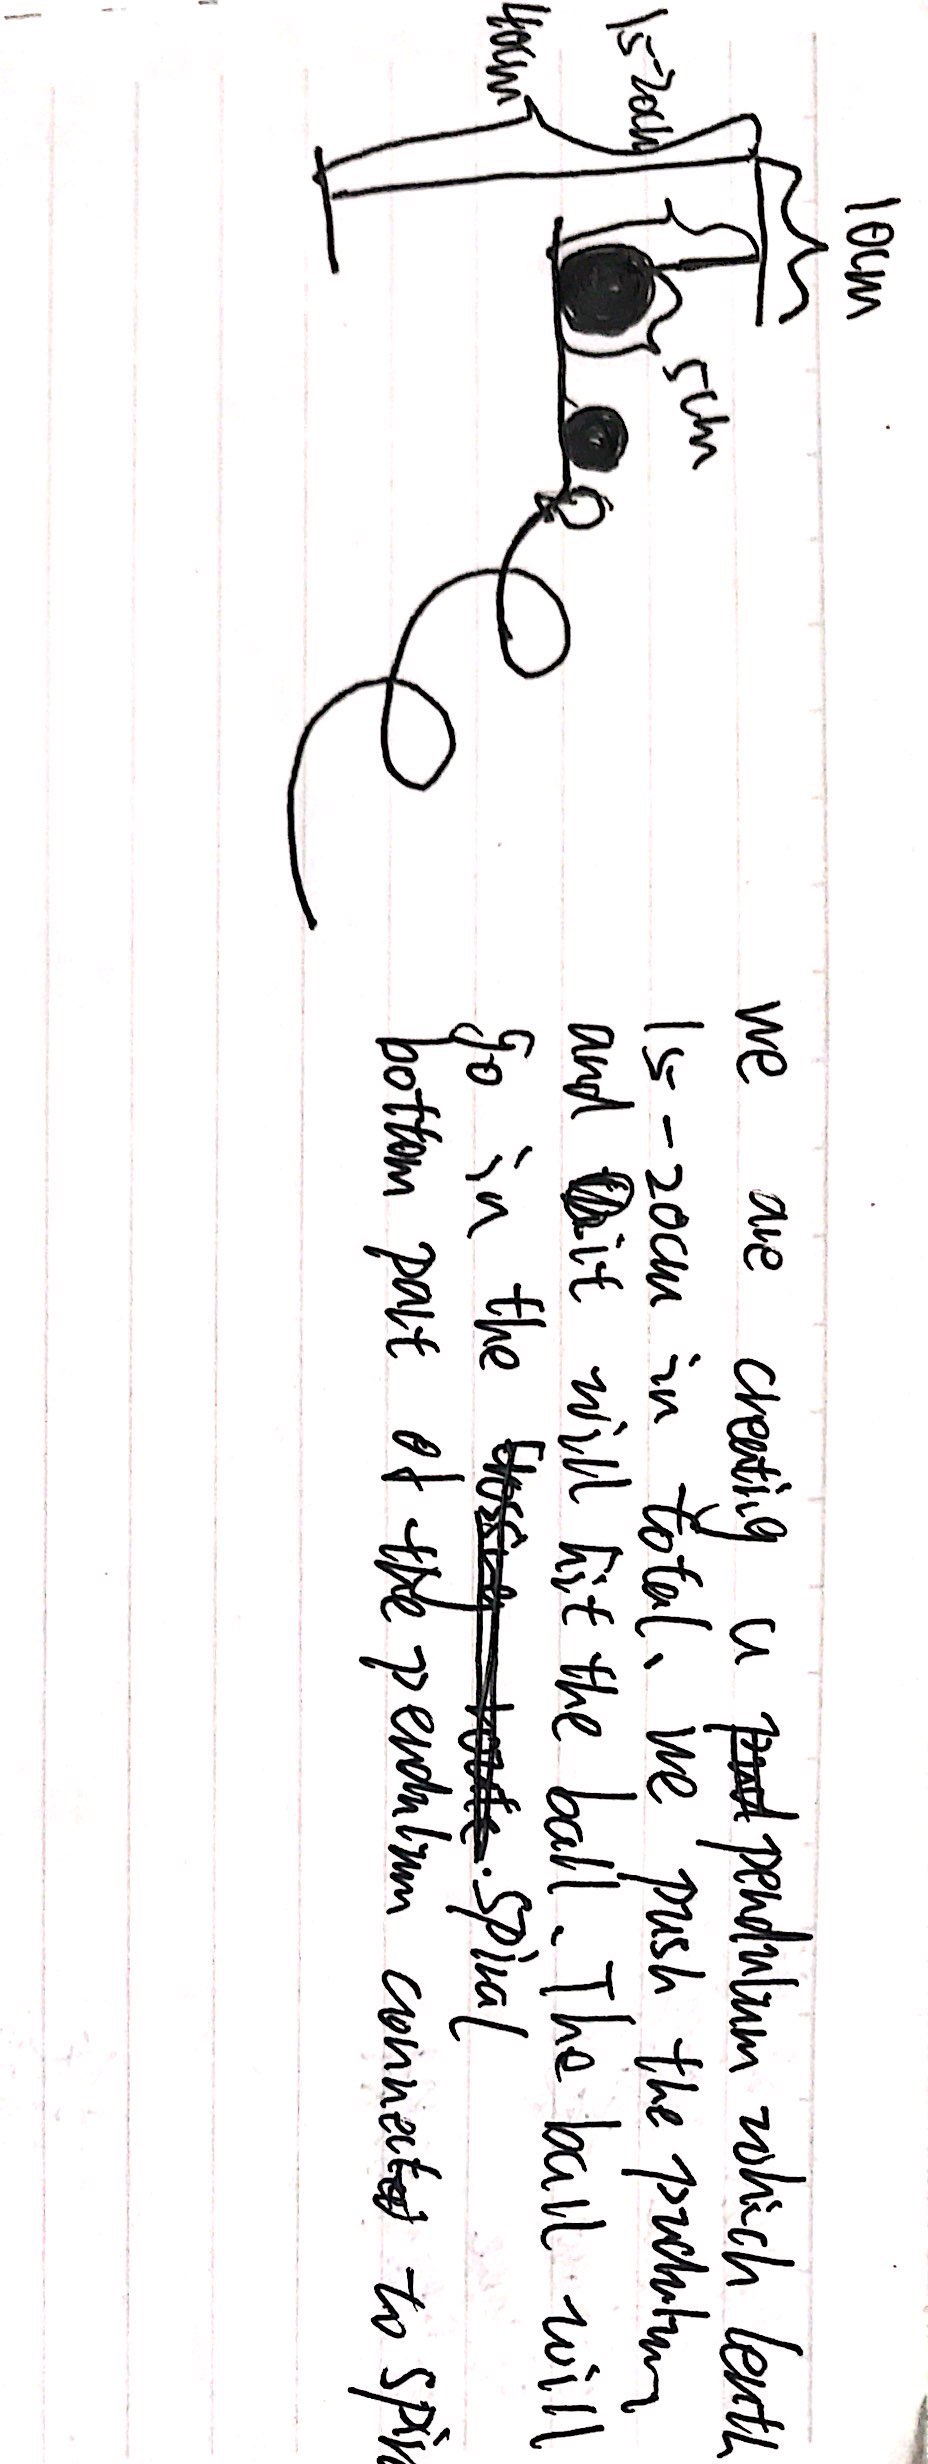 10cm
15-20cm
40cm
5cm
we are creating a pendulum which lenth
15-20cm in total. we push the pendulum
and it will hit the ball. The ball will
go in the spiral
bottom part of the pendulum connected to spir